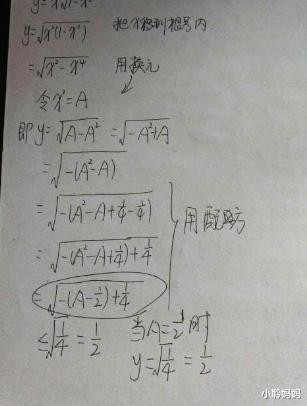 y=x√1-x²
y=√x²(1-x²) 把x移到根号内
=√x²-x⁴ 用换元
令x²=A
即y=√A-A² =√-A²+A
=√-(A²-A)
=√-(A²-A+1/4-1/4)
=√-(A²-A+1/4)+1/4 用配方
=√-(A-1/2)+1/4
≤√1/4=1/2 当A=1/2时
y=√1/4=1/2
小聆妈妈